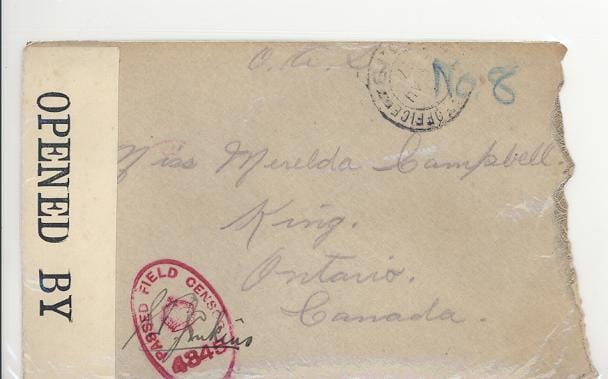 OPENED BY
O.A.S.
No. 8
OFFICE
Miss Merelda Campbell.
King.
Ontario.
Canada.
PASSED FIELD CENS
4843